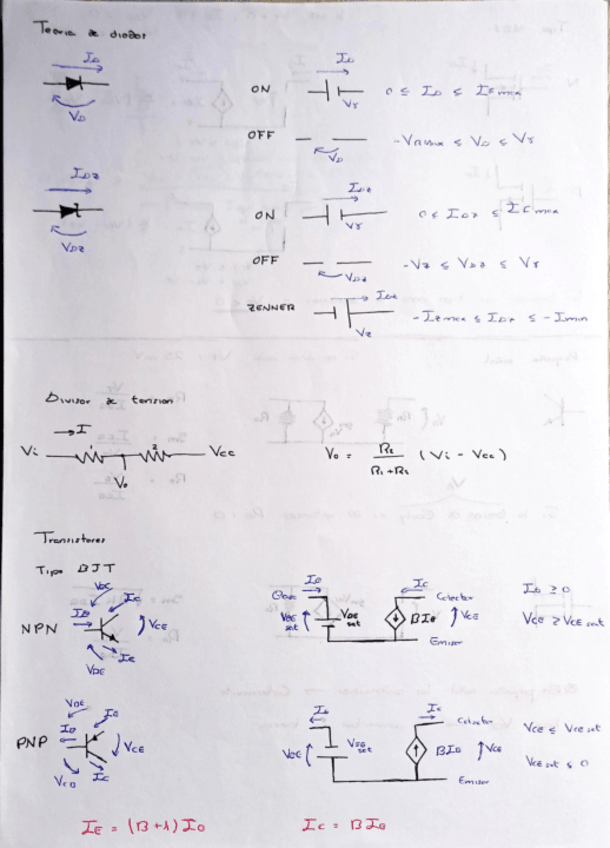 Teoria de diodos
I_D
V_D
ON
I_D
Vγ
0 ≤ I_D ≤ I_Fmax
OFF
V_D
-V_Rmax ≤ V_D ≤ Vγ
I_DZ
V_DZ
ON
I_DZ
Vγ
0 ≤ I_DZ ≤ I_Fmax
OFF
V_DZ
-V_Z ≤ V_DZ ≤ Vγ
ZENNER
I_DZ
V_Z
-I_Zmax ≤ I_DZ ≤ -I_min
Divisor de tension
I
Vi 1 2 Vcc
Vo
Vo = R2 / (R1+R2) (Vi - Vcc)
Transistores
Tipo BJT
NPN
V_BC
I_B
I_C
V_CE
V_BE
I_E
I_B
Base
V_BE sat
V_BE sat
I_C
Colector
BI_B
V_CE
Emisor
I_B ≥ 0
V_CE ≥ V_CE sat
PNP
I_B
I_E
V_CE
V_CB
I_C
I_B
V_BE
V_BE sat
I_C
Colector
BI_B
V_CE
Emisor
V_CE ≤ V_CE sat
V_CE sat ≤ 0
I_E = (B+1) I_B
I_C = B I_B